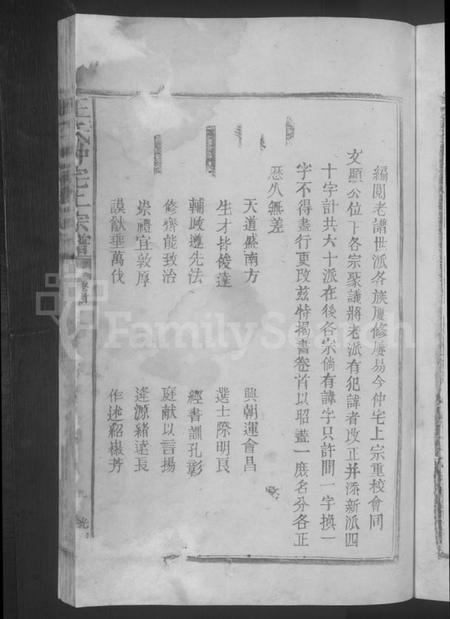 編閱老譜世派各族屢修屢易今仲宅上宗重校會同
文顯公位下各宗聚議將老派有犯諱者改正并添新派四
十字計共六十派在後各宗倘有諱字只許間一字換一
字不得盡行更改茲特揭書卷首以昭畫一庶名分各正
歷久無差
天道盛南方 興朝運會昌
生才皆俊達 選士際明良
輔歧遵先法 經書訓孔彰
修齊能致治 庭献以言揚
崇禮宜敦厚 逢源緒遠長
謨猷垂萬伐 作述紹徽芳
王氏仲宅上宗譜
卷首
FamilySearch